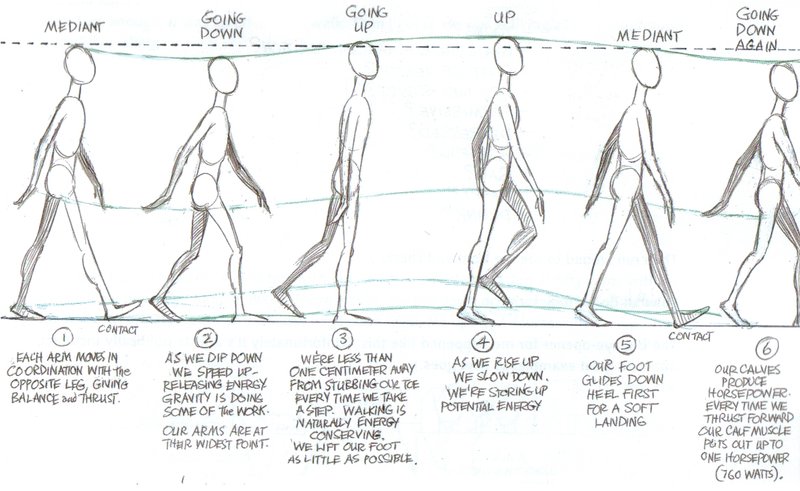 MEDIANT
GOING
DOWN
GOING
UP
UP
MEDIANT
GOING
DOWN
AGAIN
CONTACT
CONTACT
1
EACH ARM MOVES IN
COORDINATION WITH the
OPPOSITE LEG, GIVING
BALANCE and THRUST.
2
AS WE DIP DOWN
WE SPEED UP-
RELEASING ENERGY
GRAVITY IS DOING
SOME OF the WORK.
OUR ARMS ARE AT
THEIR WIDEST POINT.
3
WE'RE LESS THAN
ONE CENTIMETER AWAY
FROM STUBBING OUR TOE
EVERY TIME WE TAKE
A STEP. WALKING IS
NATURALLY ENERGY
CONSERVING.
WE LIFT OUR FOOT
AS LITTLE AS POSSIBLE.
4
AS WE RISE UP
WE SLOW DOWN.
WE'RE STORING UP
POTENTIAL ENERGY
5
OUR FOOT
GLIDES DOWN
HEEL FIRST
FOR A SOFT
LANDING
6
OUR CALVES
PRODUCE
HORSEPOWER.
EVERY TIME WE
THRUST FORWARD
OUR CALF MUSCLE
PUTS OUT UP TO
ONE HORSEPOWER
(760 WATTS).